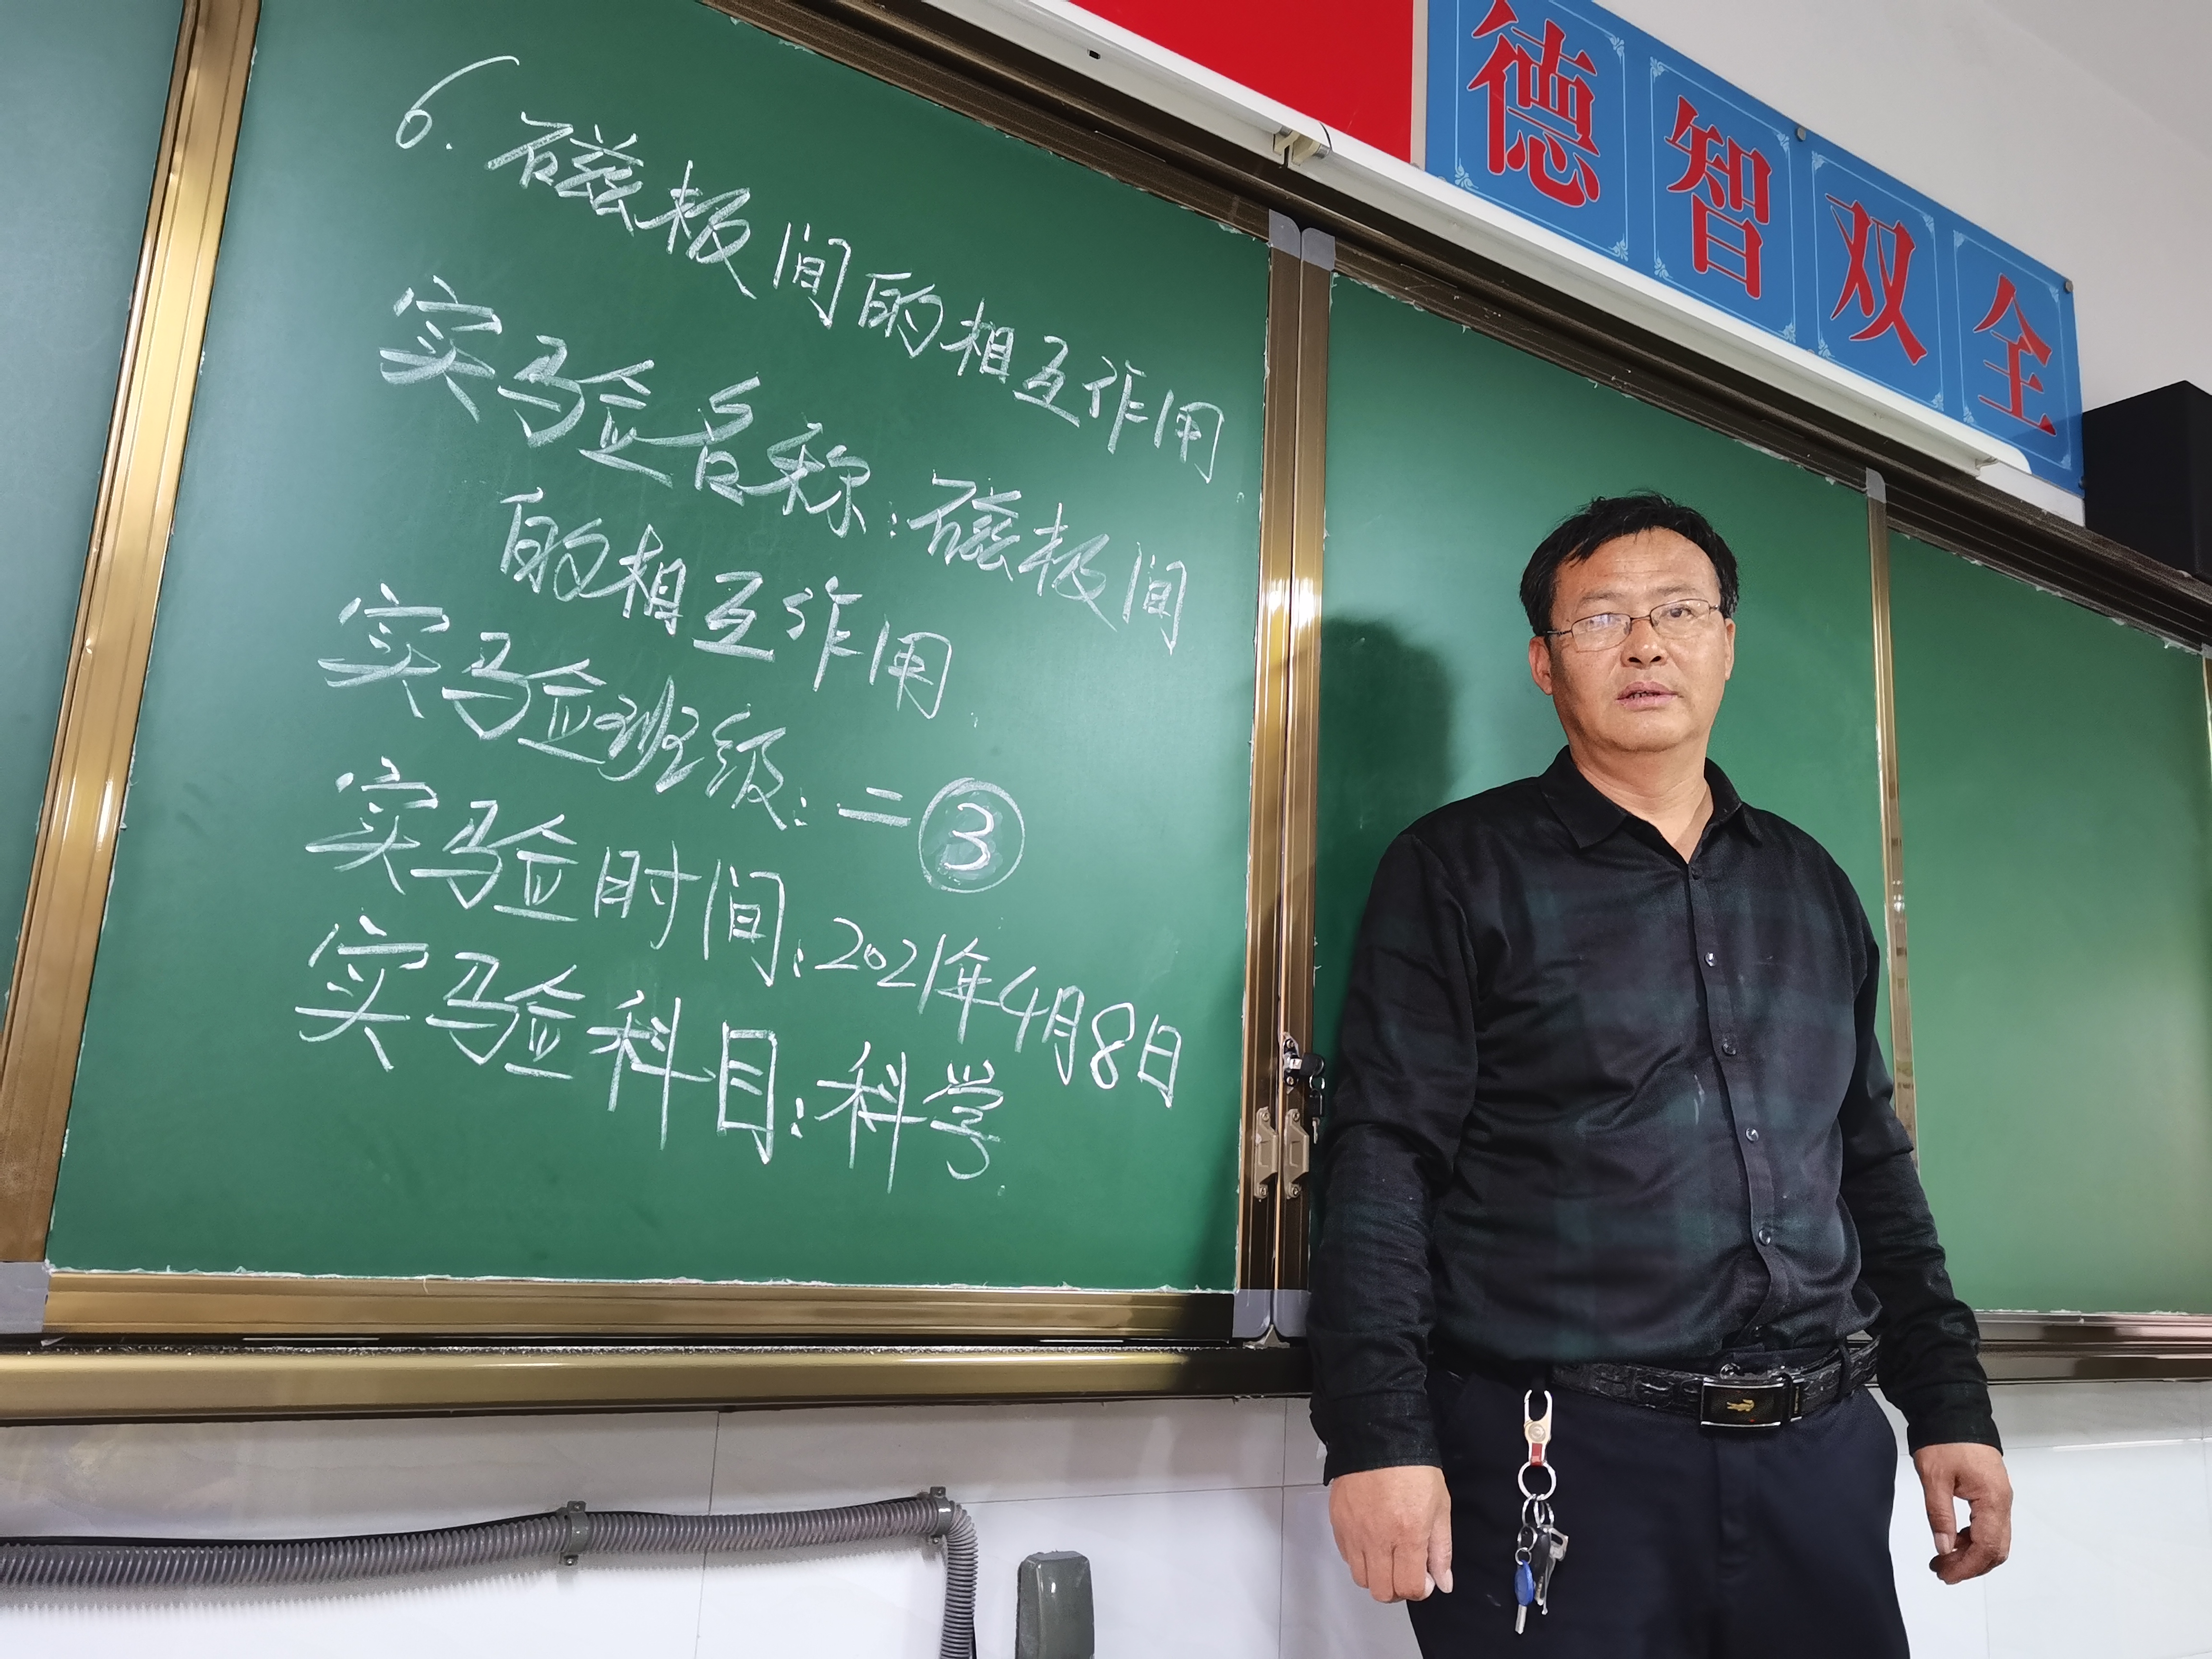 德智双全
6. 磁极间的相互作用
实验名称：磁极间
的相互作用
实验班级：二③
实验时间：2021年4月8日
实验科目：科学